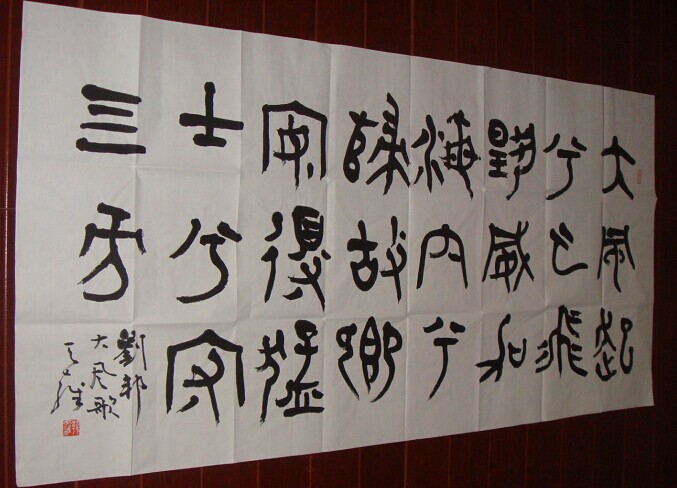 大風起
兮云飛
揚威加
海内兮
歸故鄉
安得猛
士兮守
三方
劉邦
大風歌